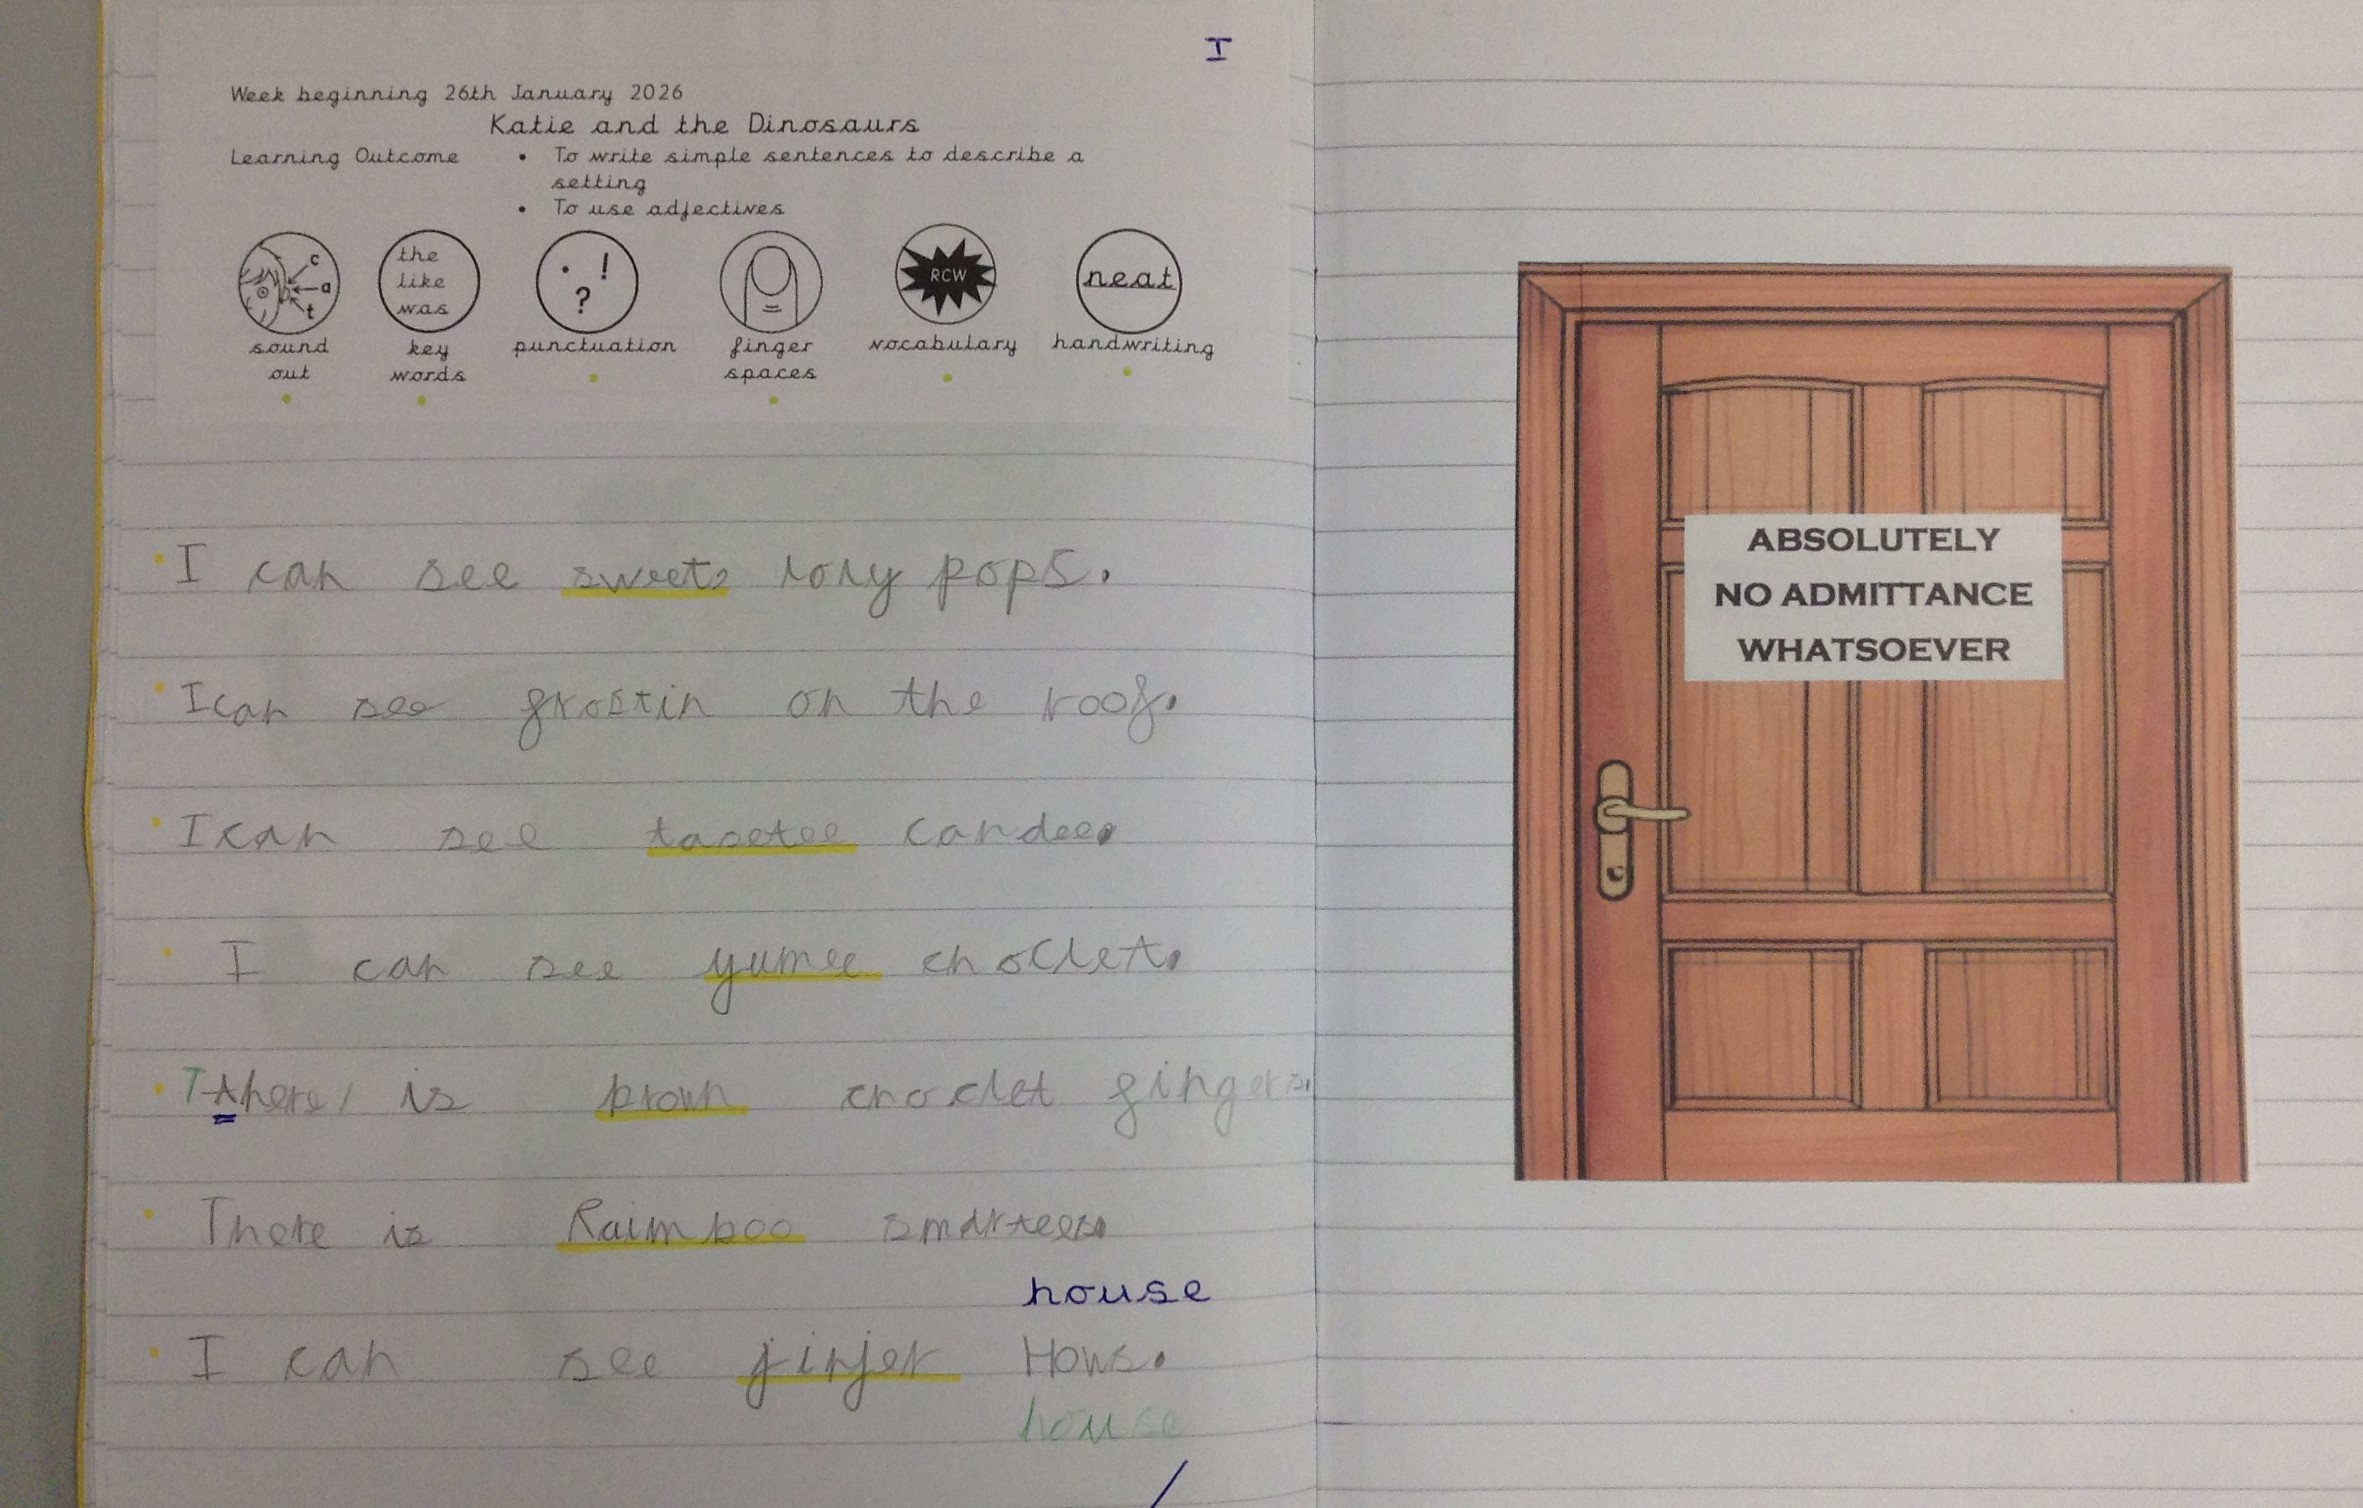 I
Week beginning 26th January 2026
Katie and the Dinosaurs
Learning Outcome • To write simple sentences to describe a
setting
• To use adjectives
c
a
t
the
like
was
. !
?
RCW
neat
sound out
key words
punctuation
finger spaces
vocabulary
handwriting
I can see sweets loly pops.
I can see frostin on the roof.
I can see tastee candee.
I can see yumee choclet.
There is brown choclet fingers.
There is Raimboo smartees.
house
I can see jinjer Hows.
house
ABSOLUTELY
NO ADMITTANCE
WHATSOEVER